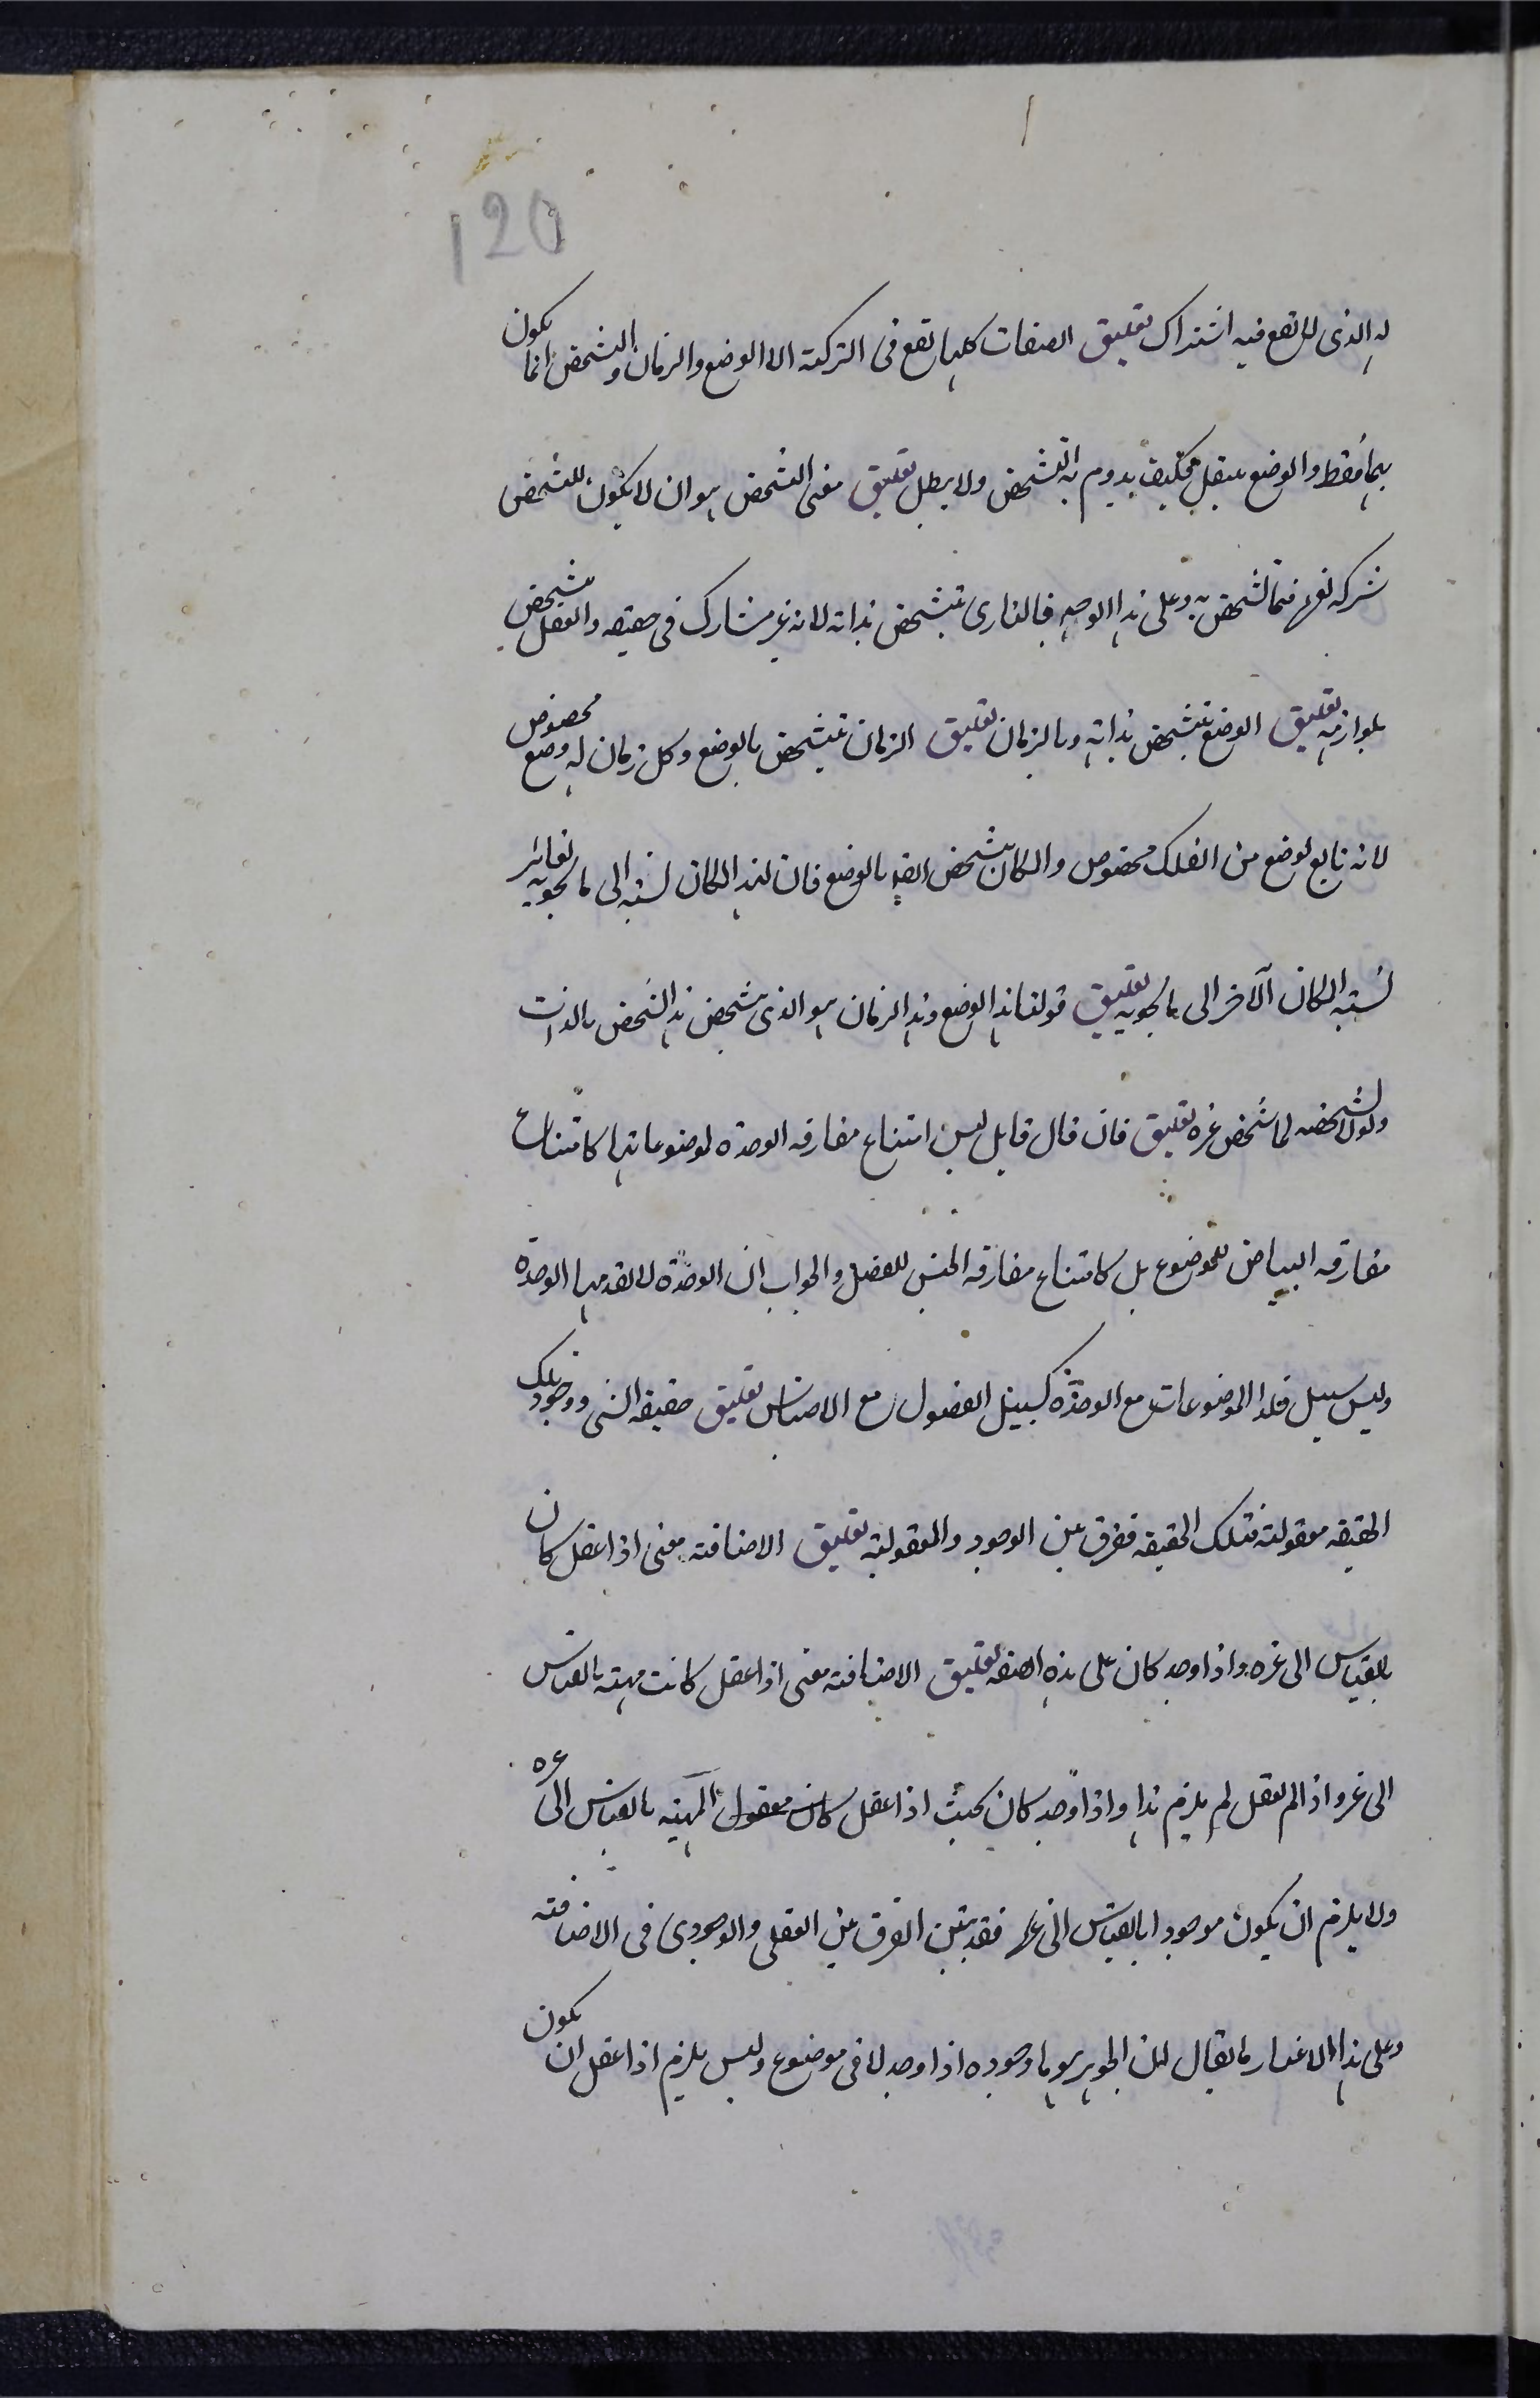 120
له الذى لا تقع فيه اشتراك تعليق الصفات كلها تقع فى الشركة الا الوضع والزمان والتشخص انما يكون
بهما فقط والوضع ينتقل فكيف يدوم به التشخص ولا يبطل تعليق معنى التشخص هو ان لا يكون للتشخص
شركه لغيره فيما تشخص به وعلى هذا الوجه فالبارى تشخص بذاته لانه غير مشارك فى حقيقته والعقل تشخص
بلوازمه تعليق الوضع تتشخص بذاته وبالزمان تعليق الزمان تتشخص بالوضع وكل زمان له وضع مخصوص
لانه تابع لوضع من الفلك مخصوص والمكان تشخص ايضا بالوضع فان لهذا المكان نسبه الى ما يحويه تغاير
نسبه المكان الآخر الى ما يحويه تعليق قولنا هذا الوضع وهذا الزمان هو الذى تشخص هذا الشخص بالذات
ولولا تشخصه لما شخص غيره تعليق فان قال قايل ليس امتناع مفارقه الوحده لموضوعاتها كامتناع
مفارقه البياض للموضوع بل كامتناع مفارقه الجنس للفصل والجواب ان الوحدة لا تقدمها الوحده
وليس سبيل فلذا الموضوعات مع الوحدة كسبيل الفصول مع الاجناس تعليق حقيقه الشى ووجود تلك
الحقيقه معقولته فتلك الحقيقه ففرق بين الوجود والمعقولته تعليق الاضافته معنى اذا عقل كان
بالقياس الى غيره واذا وجد كان على هذه الصفه تعليق الاضافته معنى اذا عقل كانت مهيته بالقياس
الى غيره واذا لم تعقل لم يلزم هذا واذا وجد كان بحيث اذا عقل كان معقول المهيه بالقياس الى غيره
ولا يلزم ان يكون موجودا بالقياس الى غيره فقد تبين الفرق بين العقلى والوجودى فى الاضافته
وعلى هذا الاعتبار ما يقال ان الجوهر هو ما وجوده اذا وجد لا فى موضوع وليس يلزم اذا عقل ان يكون